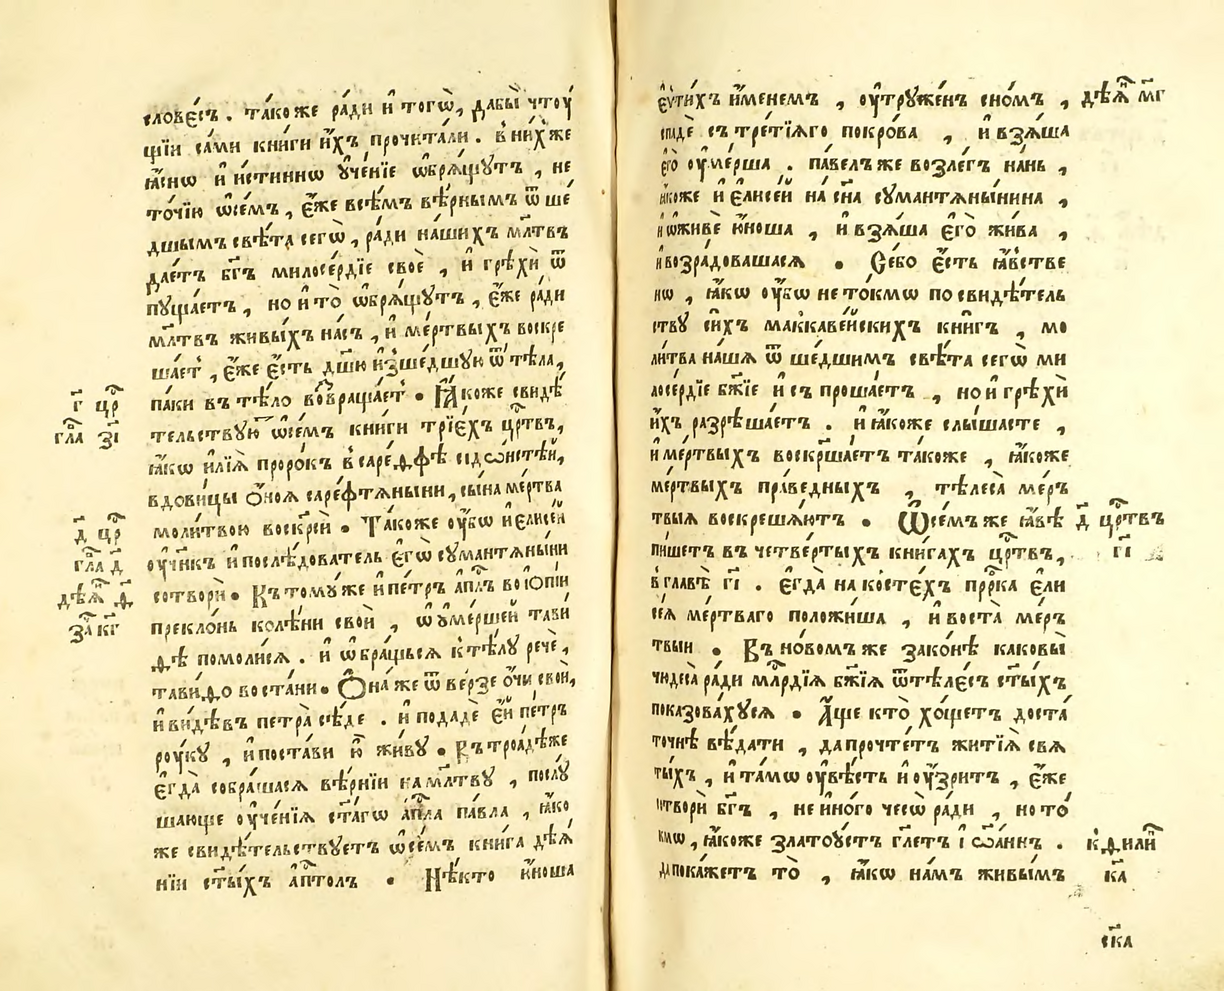 словесъ . тако же ради и того̀ѡ , дабы̀ чтоу́
щїи са́ми книги и҆́хъ прочитали . в ни́х же
ꙗ҆́сно и҆ и҆стиннѡ ᲂу҆че́нїе ѡ҆брѧ́щутъ , не
то́чїю ѡ҆се́мъ , є҆́же все́мъ вѣ́рнымъ ѿ ше́
дшымъ свѣ́та сегѡ̀ , ра́ди на́шихъ мл҃твъ
дае́тъ бг҃ъ милосе́рдїе своѐ , и҆ грѣхѝ ѿ
пуща́етъ , но и҆ то̀ ѡ҆брѧ́щутъ , є҆́же ра́ди
мл҃твъ живы́хъ на́съ , и҆ ме́ртвыхъ воскре
ша́етъ , є҆́же є҆́сть дш҃ю и҆зше́дшую ѿ тѣ́ла ,
паки въ тѣ́ло возвраща́етъ • Ꙗ҆́коже свидѣ́
г҃ цр҃
тельствую ѡ҆се́мъ книги трїе́хъ цр҃твъ ,
гл҃а з҃і
ꙗ҆́кѡ и҆лїѧ̀ проро́къ в саре́фѳѣ сїдѡ́нстѣй ,
вдови́цы ѻ҆́ноѧ саре́фтѧныни , сы́на ме́ртва
моли́твою воскреси̇̀ • Та́коже ᲂу҆́бѡ и҆ є҆лисе́й
д҃ цр҃
ᲂу҆чн҃къ и҆ послѣ́дователь є҆гѡ̀ сумантѧны́ни
гл҃а д҃
сотворѝ • Къ тому́ же и҆ пе́тръ а҆пл҃ъ во і҆опі́и
дѣѧ҃ ѳ҃
прекло́нь колѣ́ни своѝ , ѡ҆ ᲂу҆ме́ршей тави
за҃ кг҃
ѳѣ̀ помоли́сѧ . и҆ ѡ҆бра́щьсѧ к тѣ́лу речѐ ,
тави́ѳо воста́ни • Ѻ҆на́ же ѿ ве́рзе ѻ҆́чи своѝ ,
и҆ ви́дѣвъ петра̀ сѣ́де . и҆ подадѐ є҆́й пе́тръ
роу́ку , и҆ поста́ви ю҆̀ жи́ву • Въ троа́дѣ же
є҆гда̀ собра́шасѧ вѣ́рнїи на мл҃тву , послꙋ́
шающе ᲂу҆че́нїѧ ст҃а́гѡ а҆пл҃а па́вла , ꙗ҆́ко
же свидѣ́тельствуетъ ѡ҆се́мъ книга дѣѧ́
нїи ст҃ы́хъ а҆пт҃олъ • Нѣ́кто ю҆́ноша
є҆ѵти́хъ и҆́менемъ , ᲂу҆тружде́нъ сно́мъ ,
дѣѧ҃н м҃г
спадѐ съ тре́тїѧго покро́ва , и҆ взѧ́ша
є҆го̀ ᲂу҆ме́рша . па́велъ же возле́гъ на́нь ,
ꙗ҆́коже и҆ є҆лисе́й на сн҃а сумантѧны́нина ,
и҆ ѡ҆живѐ ю҆́ноша , и҆ взѧ́ша є҆го̀ жи́ва ,
и҆ возра́довашасѧ • Се бо є҆́сть ꙗ҆́встве
ннѡ , ꙗ҆́кѡ ᲂу҆́бѡ не то́кмѡ по свидѣ́тель
ству си́хъ маккаве́йскихъ кни́гъ , мо
ли́тва на́шѧ ѿ ше́дшимъ свѣ́та сегѡ̀ ми
лосе́рдїе бж҃їе и҆ съ проша́етъ , но и҆ грѣхѝ
и҆́хъ разрѣша́етъ . и҆ ꙗ҆́коже слы́шасте ,
и҆ ме́ртвыхъ воскрша́етъ та́коже , ꙗ҆́коже
ме́ртвыхъ пра́ведныхъ , тѣлеса̀ ме́р
твыѧ воскреша́ютъ • Ѡ҆се́мъ же ꙗ҆́вѣ
д҃ цр҃твъ
пи́шетъ въ четве́ртыхъ кни́гахъ цр҃твъ ,
г҃і
в главѣ̀ г҃і . є҆гда̀ на косте́хъ прр҃ка є҆ли
се́ѧ ме́ртваго положи́ша , и҆ воста̀ ме́р
твыи • Въ но́вомъ же зако́нѣ каковы̀
чюдеса̀ ра́ди млр҃дїѧ бж҃їѧ ѿ тѣле́съ ст҃ы́хъ
показова́хусѧ • А҆́ще кто̀ хо́щетъ доста́
точнѣ вѣ́дати , да прочте́тъ житїѧ̀ свѧ
ты́хъ , и҆ та́мѡ ᲂу҆вѣ́сть и҆ ᲂу҆́зритъ , є҆́же
сотворѝ бг҃ъ , не и҆но́го чесѡ̀ ра́ди , но то́
кмѡ , ꙗ҆́коже златоу́стъ гл҃етъ і҆ѡа́ннъ .
да пока́жетъ то̀ , ꙗ҆́кѡ на́мъ живы́мъ
ка
с҃ка